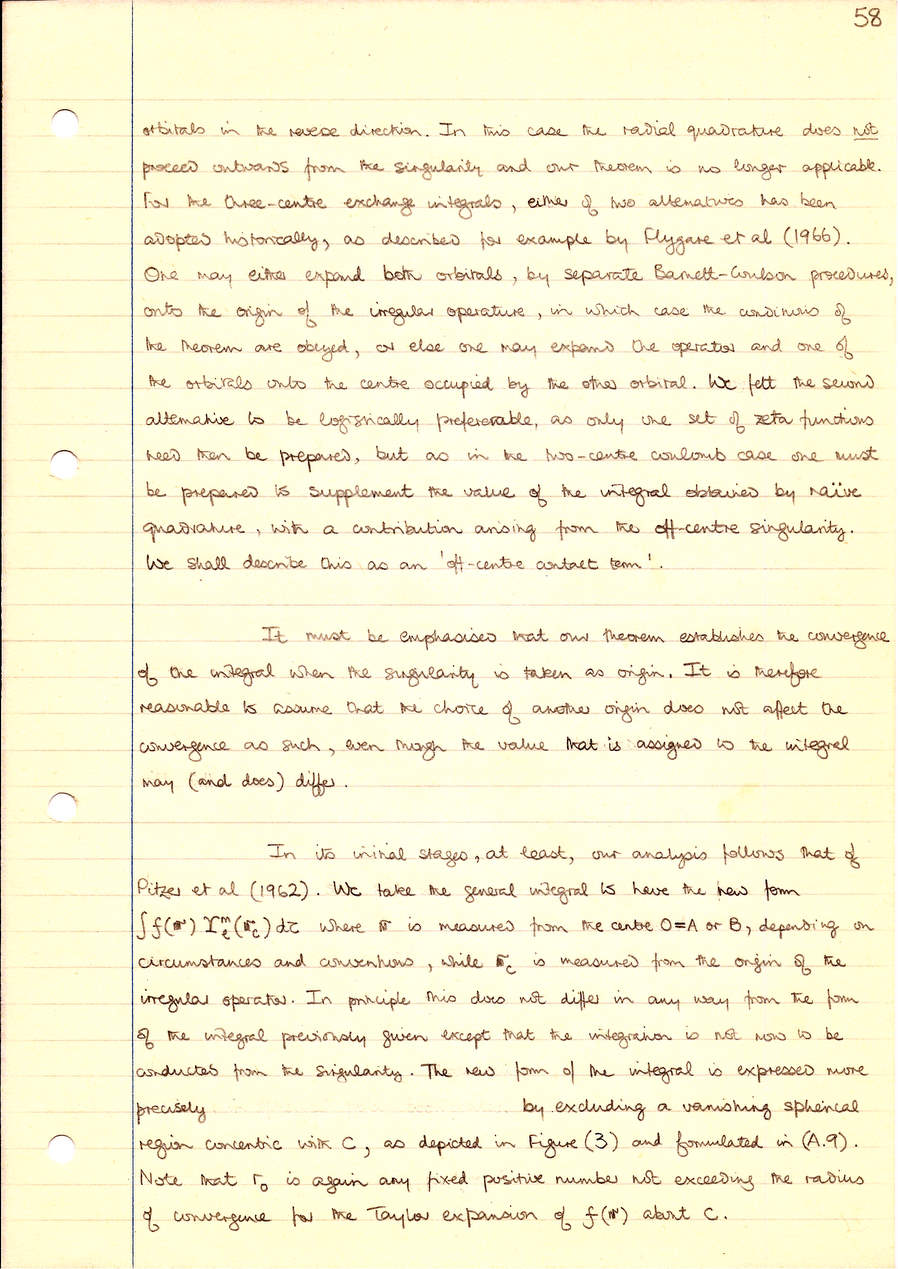 58
orbitals in the reverse direction. In this case the radial quadrature does not
proceed outwards from the singularity and our theorem is no longer applicable.
For the three-centre exchange integrals, either of two alternatives has been
adopted historically, as described for example by Flygare et al (1966).
One may either expand both orbitals, by separate Barnett-Coulson procedures,
onto the origin of the irregular operature, in which case the conditions of
the theorem are obeyed, or else one may expand the operator and one of
the orbitals onto the centre occupied by the other orbital. We felt the second
alternative to be logistically prefererable, as only one set of zeta functions
need then be prepared, but as in the two-centre coulomb case one must
be prepared to supplement the value of the integral obtained by naïve
quadrature, with a contribution arising from the off-centre singularity.
We shall describe this as an 'off-centre contact term'.
It must be emphasised that our theorem establishes the convergence
of the integral when the singularity is taken as origin. It is therefore
reasonable to assume that the choice of another origin does not affect the
convergence as such, even though the value that is assigned to the integral
may (and does) differ.
In its initial stages, at least, our analysis follows that of
Pitzer et al (1962). We take the general integral to have the new form
∫ f(r) Υ_ℓ^m(r_c) dτ where r is measured from the centre O=A or B, depending on
circumstances and conventions, while r_c is measured from the origin of the
irregular operator. In principle this does not differ in any way from the form
of the integral previously given except that the integration is not now to be
conducted from the singularity. The new form of the integral is expressed more
precisely by excluding a vanishing spherical
region concentric with C, as depicted in Figure (3) and formulated in (A.9).
Note that r₀ is again any fixed positive number not exceeding the radius
of convergence for the Taylor expansion of f(r) about C.